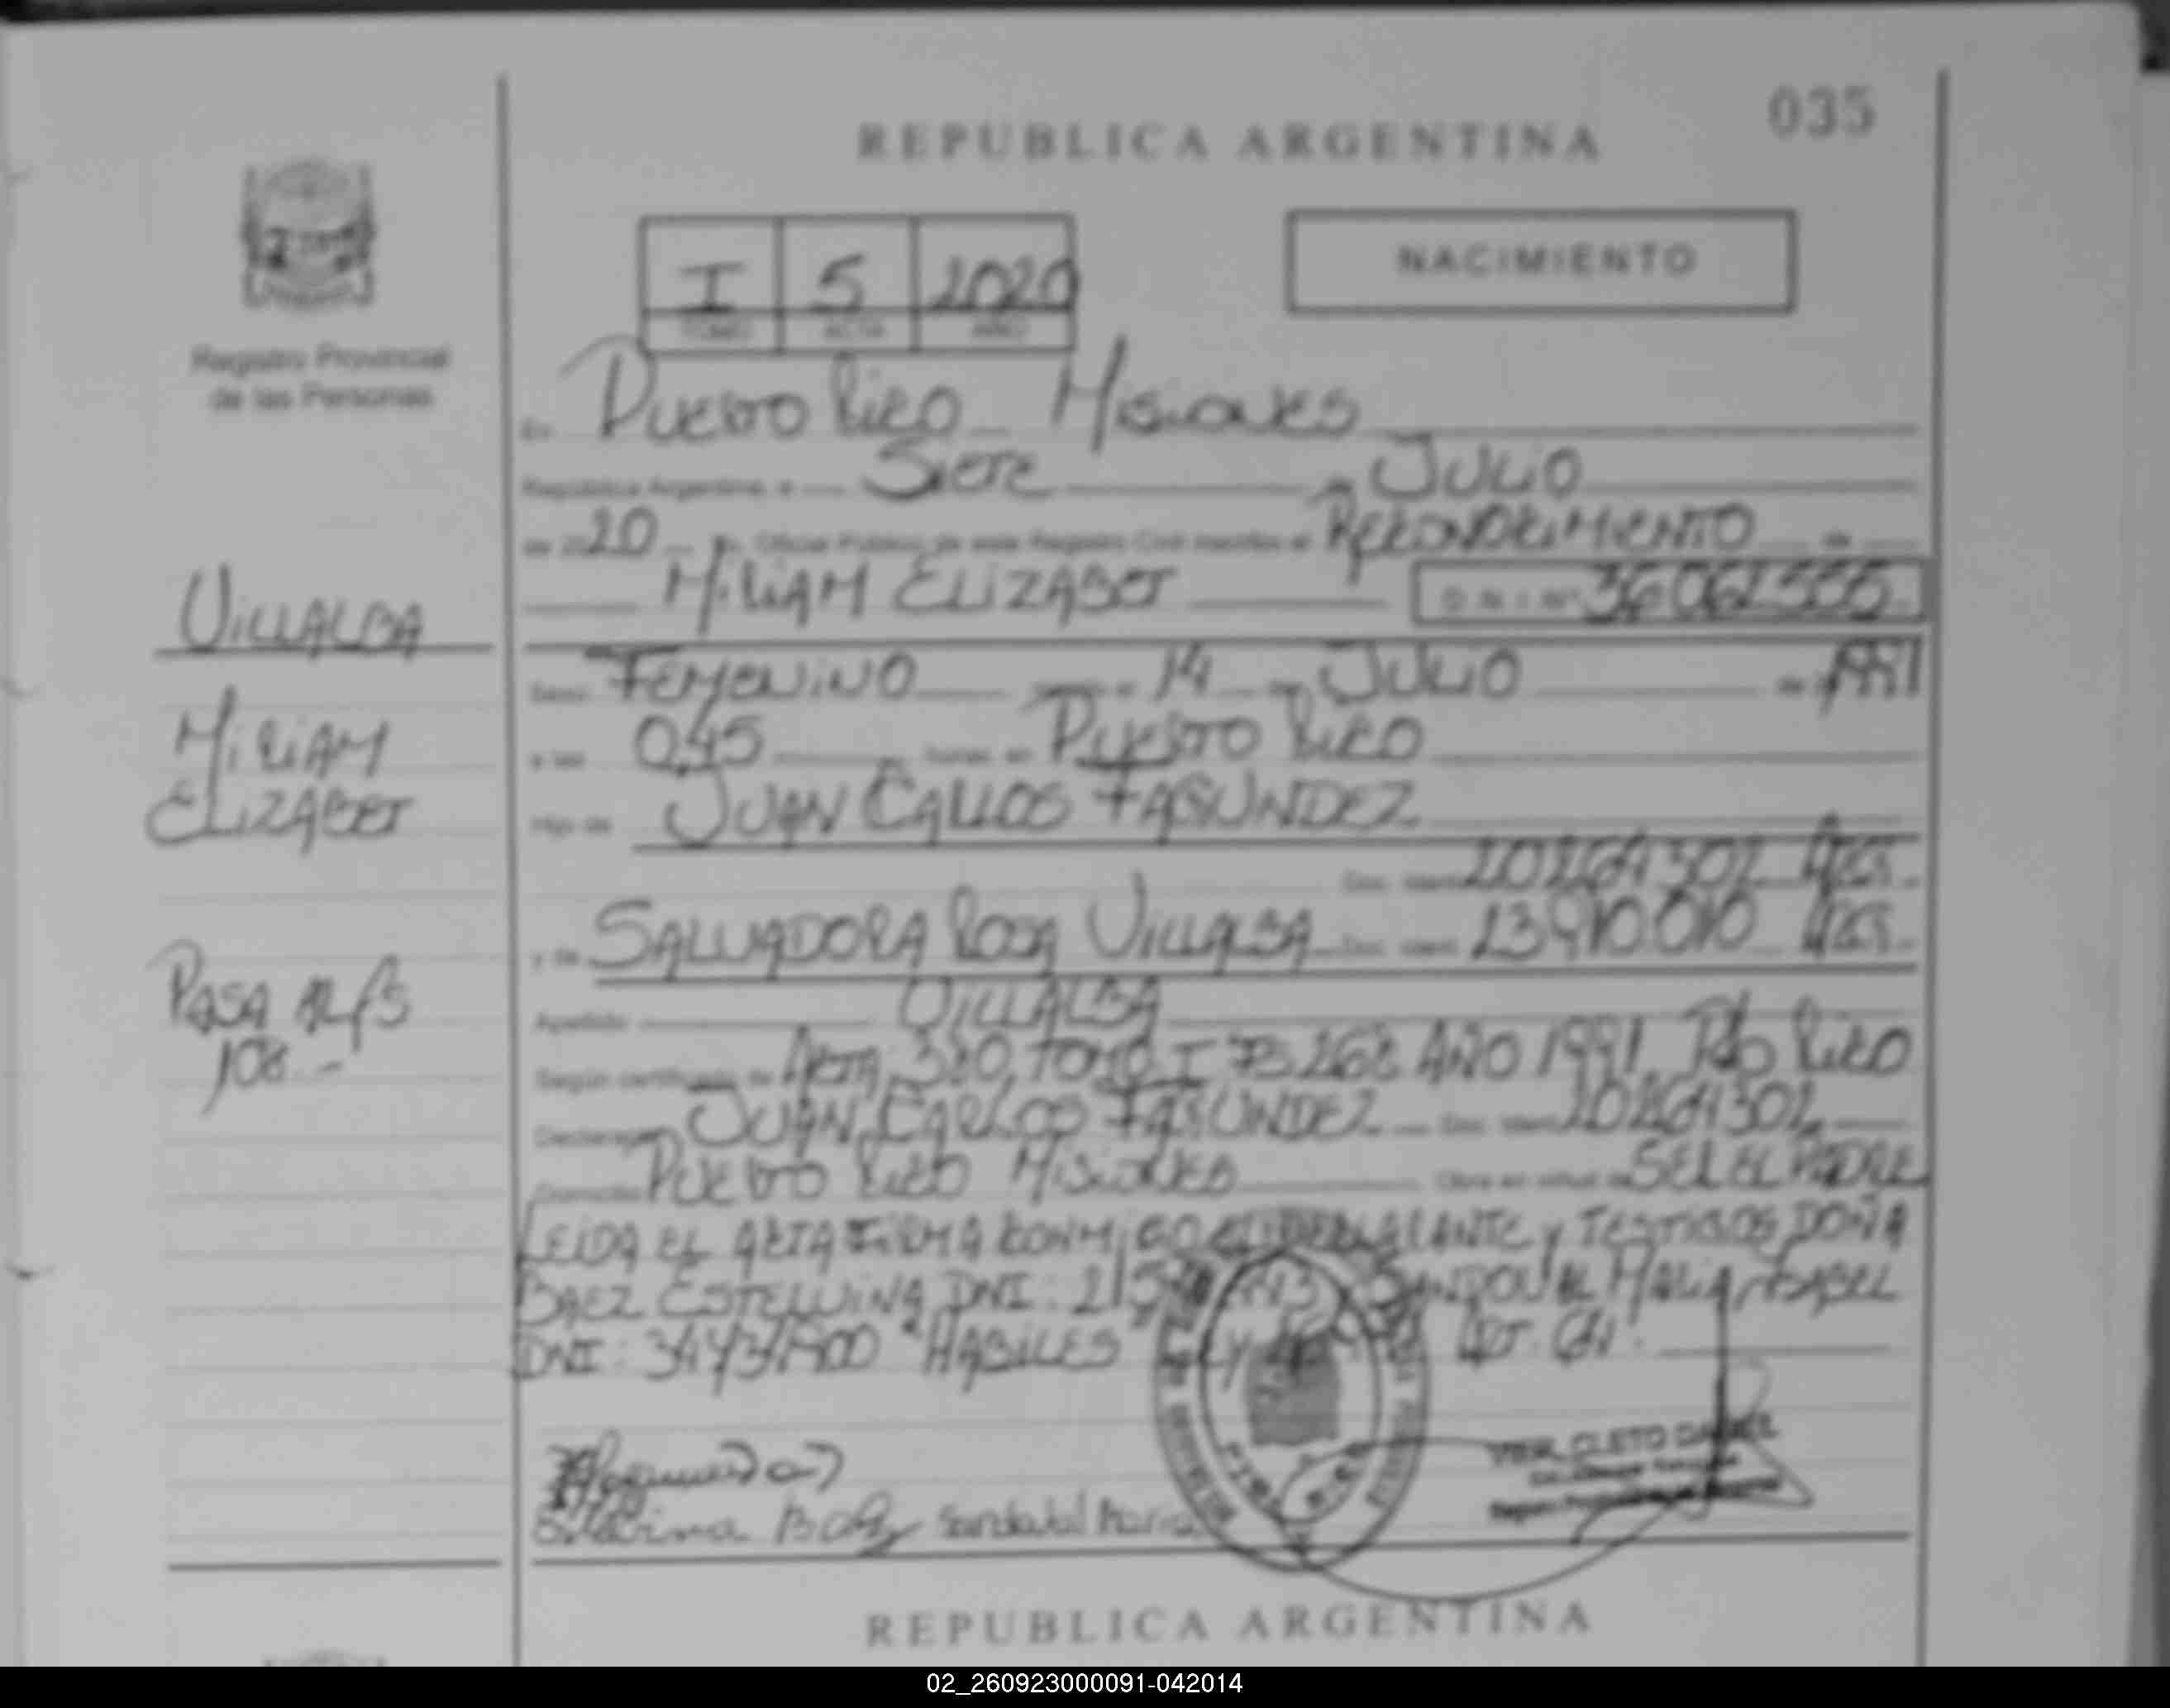 035
REPUBLICA ARGENTINA
I 5 2020
TOMO ACTA AÑO
NACIMIENTO
Registro Provincial
de las Personas
En Puerto Rico Misiones
República Argentina, a Siete de Julio
de 2020 Oficial Público de este Registro Civil inscribo el Reconocimiento de
Miriam Elizabet D N I Nº 36062555
Villalba
Miriam
Elizabet
Pasa al fs
108.-
Sexo Femenino 14 Julio de 1991
a las 0,45 horas en Puerto Rico
Hijo de Juan Carlos Fagundez
Doc. Ident. 20264302 Arg.
y de Salvadora Rosa Villalba Doc. Ident. Arg.
Apellido Villalba
Según certificado de Acta Tomo I Año 1991 Pto Rico
Declarante Juan Carlos Fagundez Doc. Ident. 20264302
Domicilio Puerto Rico Misiones Obra en virtud de Ser el Padre
Leida el acta firma conmigo el declarante y testigos Doña
Baez Estelvina DNI: Sandoval Maria Isabel
DNI: "Habiles Ley Art. 64.
Sandobal Maria
VIER CLETO DANIEL
REPUBLICA ARGENTINA
02_260923000091-042014